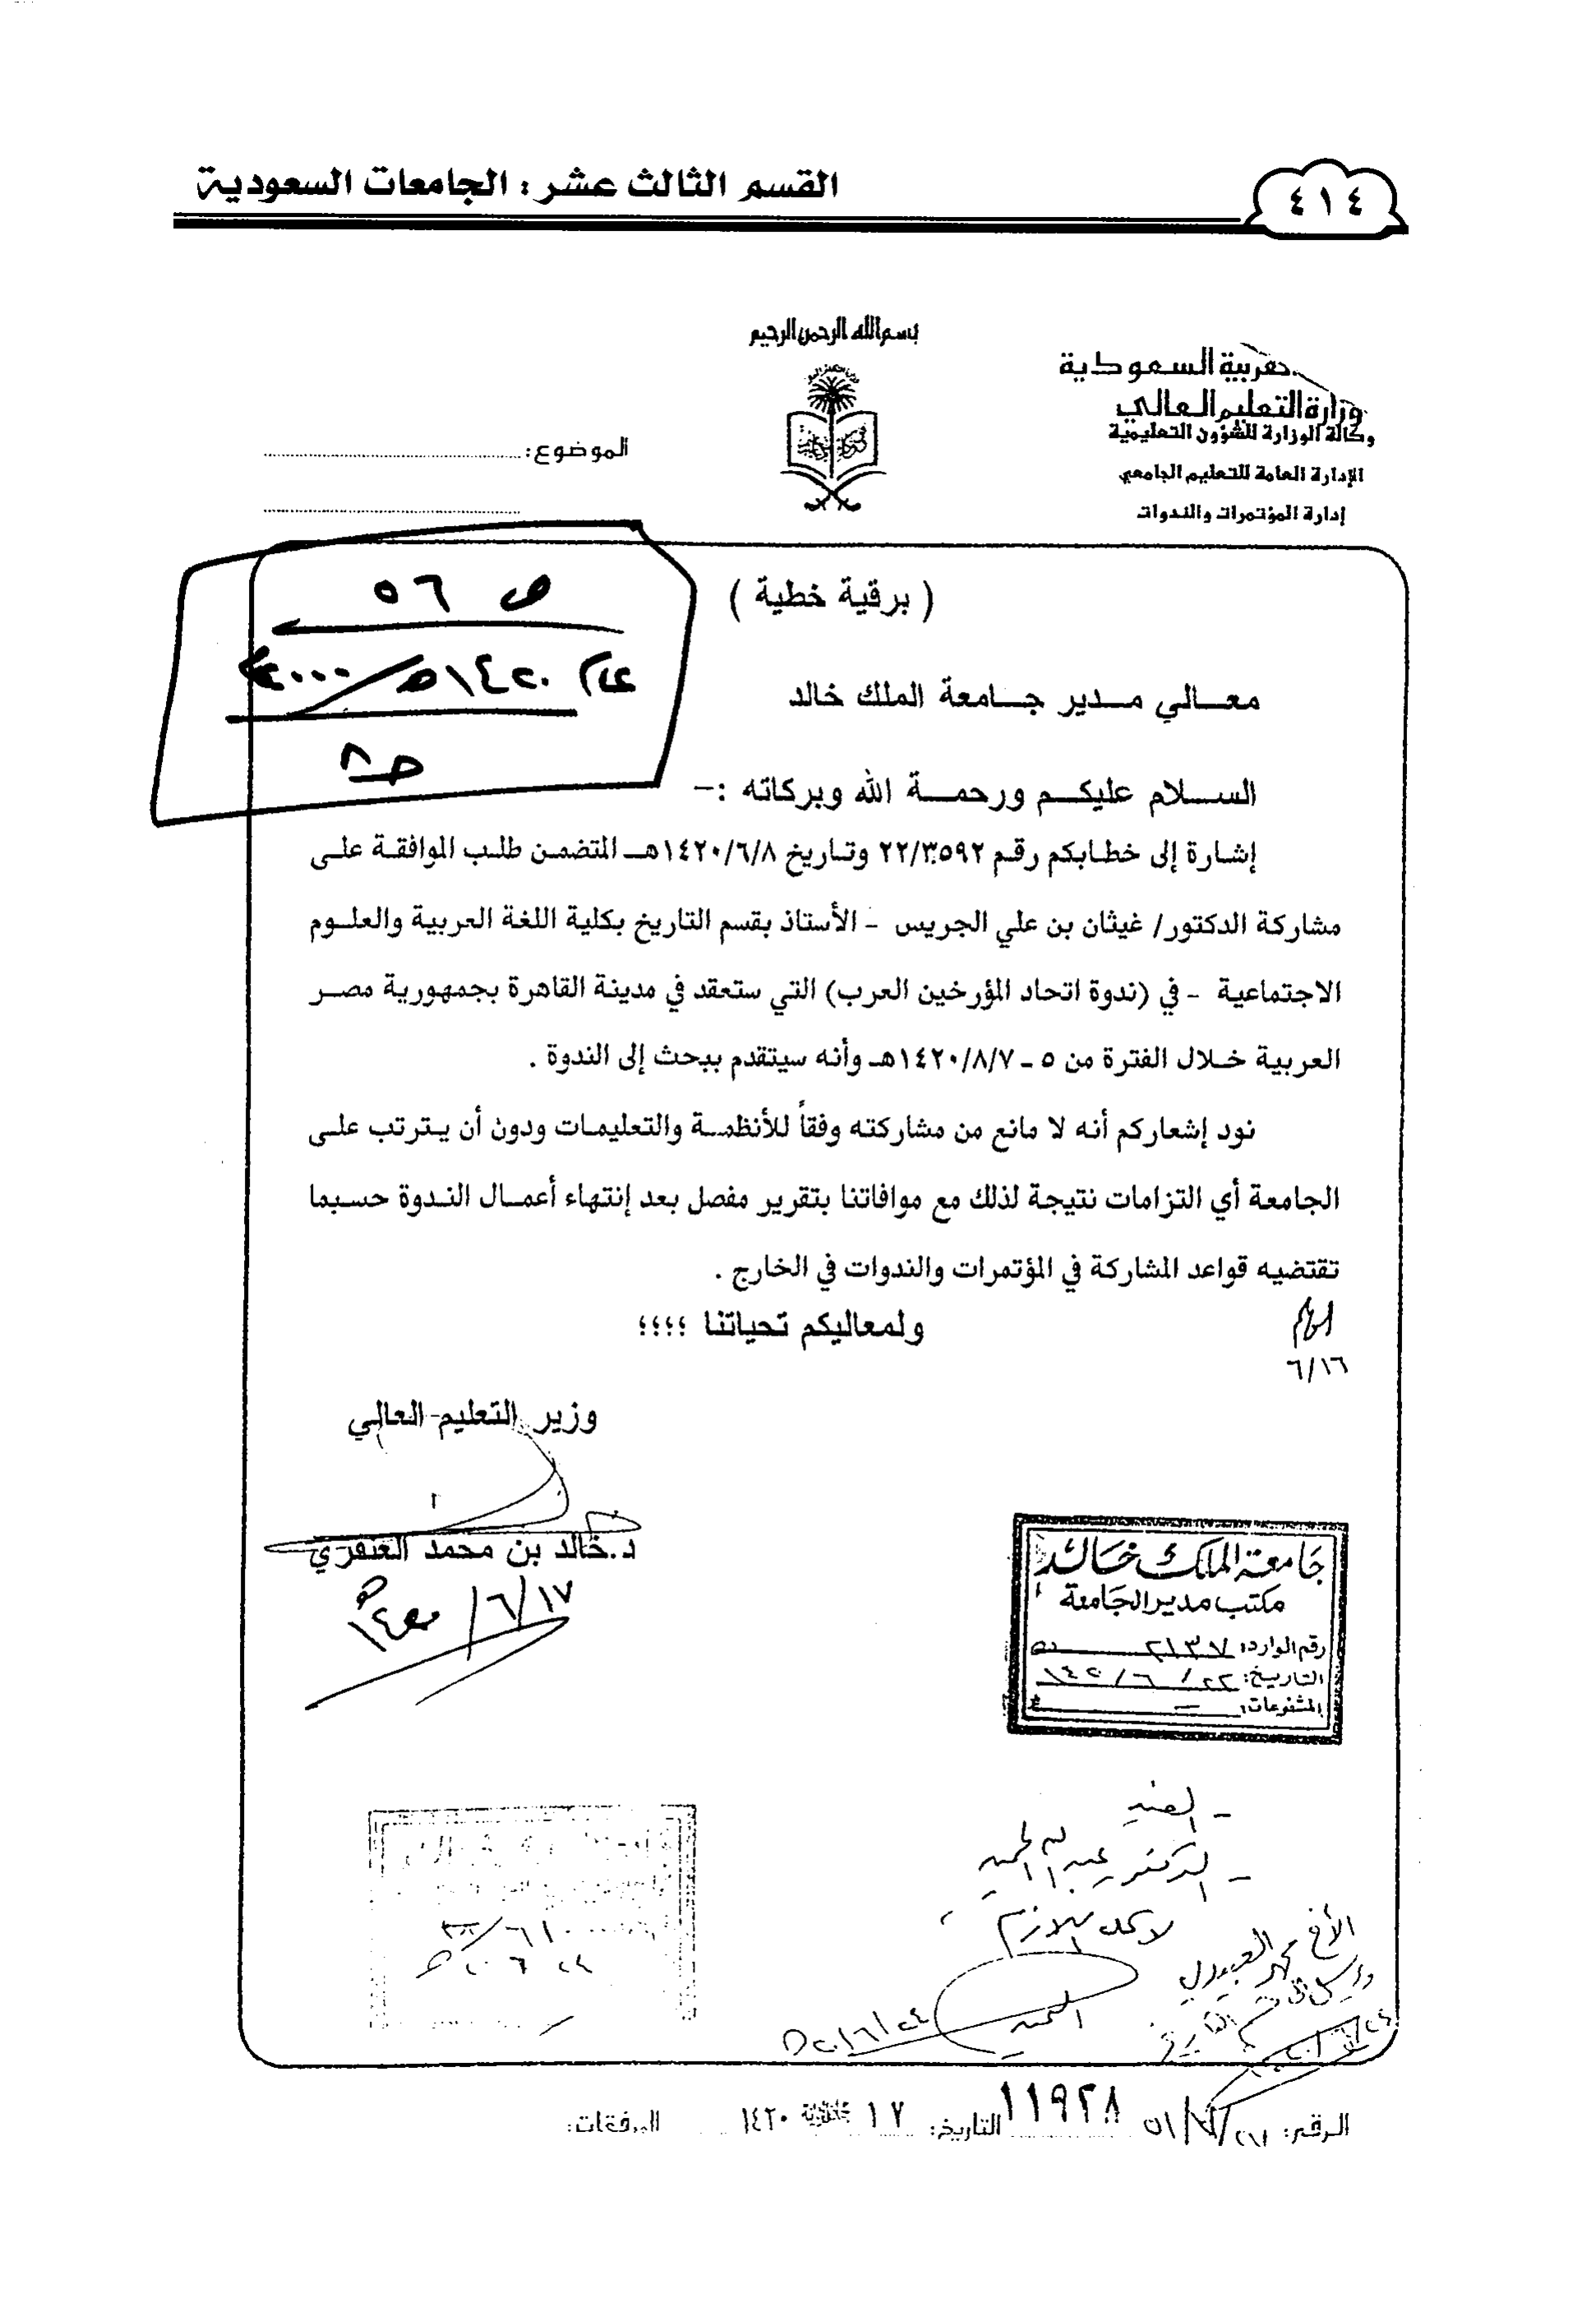 القسم الثالث عشر : الجامعات السعودية
٤١٤
بسم الله الرحمن الرحيم
السعودية
وزارة التعليم العالي
وكالة الوزارة للشؤون التعليمية
الإدارة العامة للتعليم الجامعي
إدارة المؤتمرات والندوات
الموضوع:
ص ٥٦
عام ١٤٢٠هـ/٢٠٠٠م
ح٨
( برقية خطية )
معالي مدير جامعة الملك خالد
السلام عليكم ورحمة الله وبركاته :-
إشارة إلى خطابكم رقم ٢٢/٣٥٩٢ وتاريخ ١٤٢٠/٦/٨هـ المتضمن طلب الموافقة على
مشاركة الدكتور/ غيثان بن علي الجريس - الأستاذ بقسم التاريخ بكلية اللغة العربية والعلوم
الاجتماعية - في (ندوة اتحاد المؤرخين العرب) التي ستعقد في مدينة القاهرة بجمهورية مصر
العربية خلال الفترة من ٥ - ١٤٢٠/٨/٧هـ وأنه سيتقدم ببحث إلى الندوة .
نود إشعاركم أنه لا مانع من مشاركته وفقاً للأنظمة والتعليمات ودون أن يترتب على
الجامعة أي التزامات نتيجة لذلك مع موافاتنا بتقرير مفصل بعد إنتهاء أعمال الندوة حسبما
تقتضيه قواعد المشاركة في المؤتمرات والندوات في الخارج .
ولمعاليكم تحياتنا ؛؛؛؛
٦/١٦
وزير التعليم العالي
د.خالد بن محمد العنقري
٦/١٧
جامعة الملك خالد
مكتب مدير الجامعة
رقم الوارد: ٢١٣٧
التاريخ: ٢٢/٦/١٤٢
المشفوعات:
الرقم: ١١٩٢٨ التاريخ: ١٧ ١٤٢٠ المرفقات: